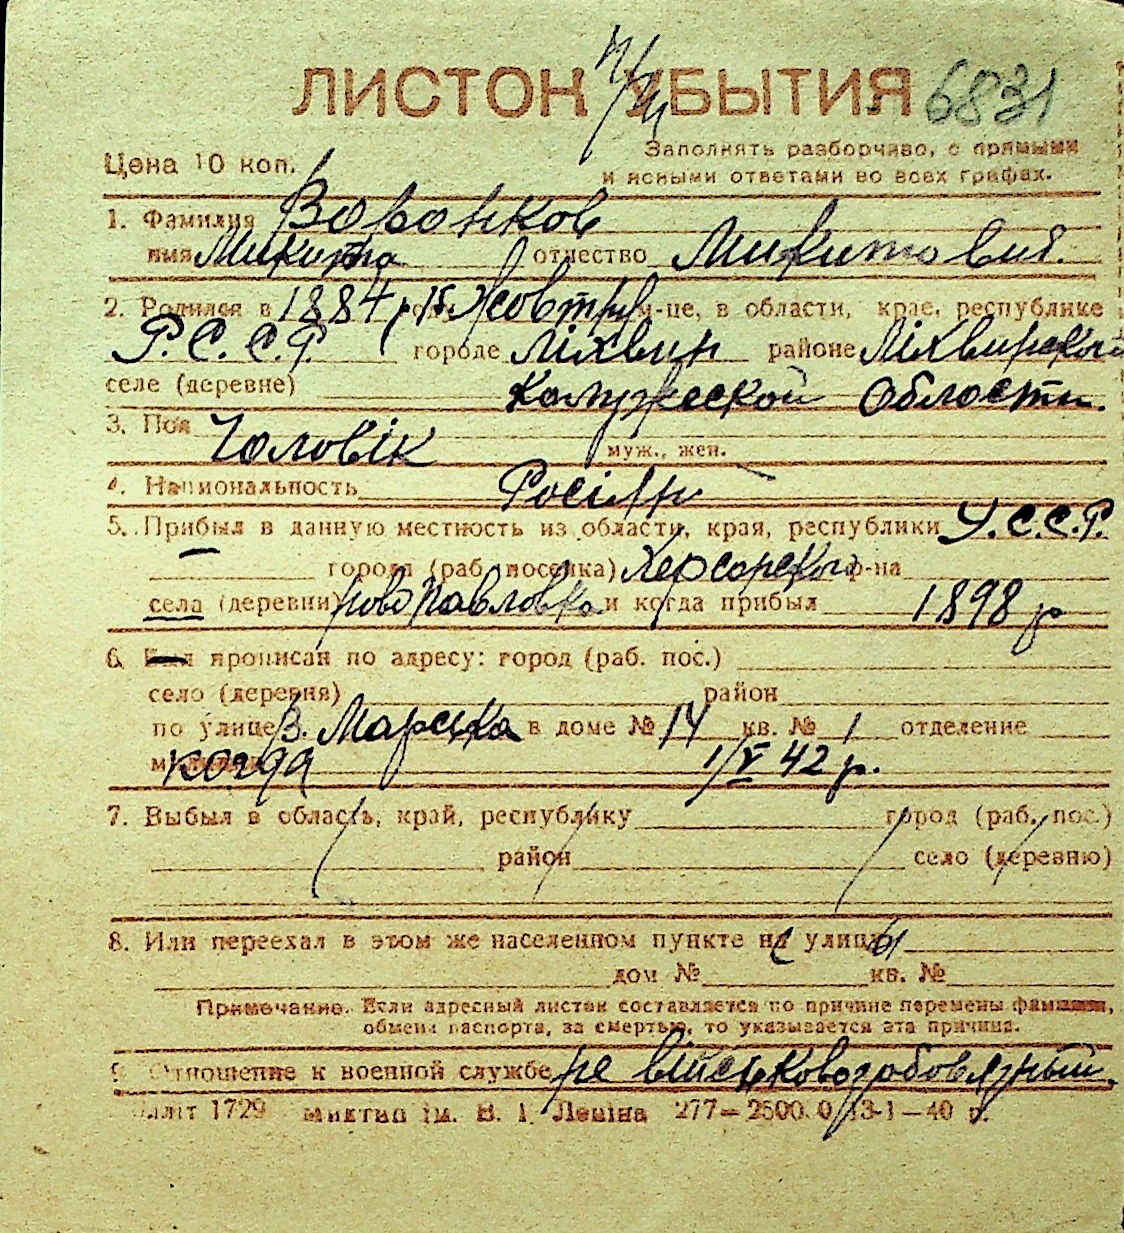 ЛИСТОК УБЫТИЯ 6831
Цена 10 коп.
Заполнять разборчиво, с прямыми
и ясными ответами во всех графах.
1. Фамилия Воронков
имя Микита отчество Микитович.
2. Родился в 1884 р. 15 Жовтня м-це, в области, крае, республике
Р.С.С.Р. городе Ліхвин районе Ліхвинского
селе (деревне) Калужеской Области.
3. Пол Чоловік муж., жен.
4. Национальность Росіян
5. Прибыл в данную местность из области, края, республики У.С.С.Р.
города (раб. поселка) Херсонского р-на
села (деревни) Ново Павловка и когда прибыл 1898 р
6. Был прописан по адресу: город (раб. пос.)
село (деревня) район
по улице В. Марська в доме № 14 кв. № 1 отделение
когда 1/V 42 р.
7. Выбыл в область, край, республику город (раб. пос.)
район село (деревню)
8. Или переехал в этом же населенном пункте на улицу
дом № кв. №
Примечание. Если адресный листок составляется по причине перемены фамилии,
обмена паспорта, за смертью, то указывается эта причина.
9. Отношение к военной службе не військовозобовязный.
1729 Миктип ім. В. І. Леніна 277—2500. 0/13-1—40 р.